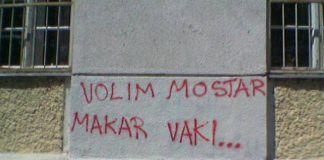 VOLIM MOSTAR
MAKAR VAKI...